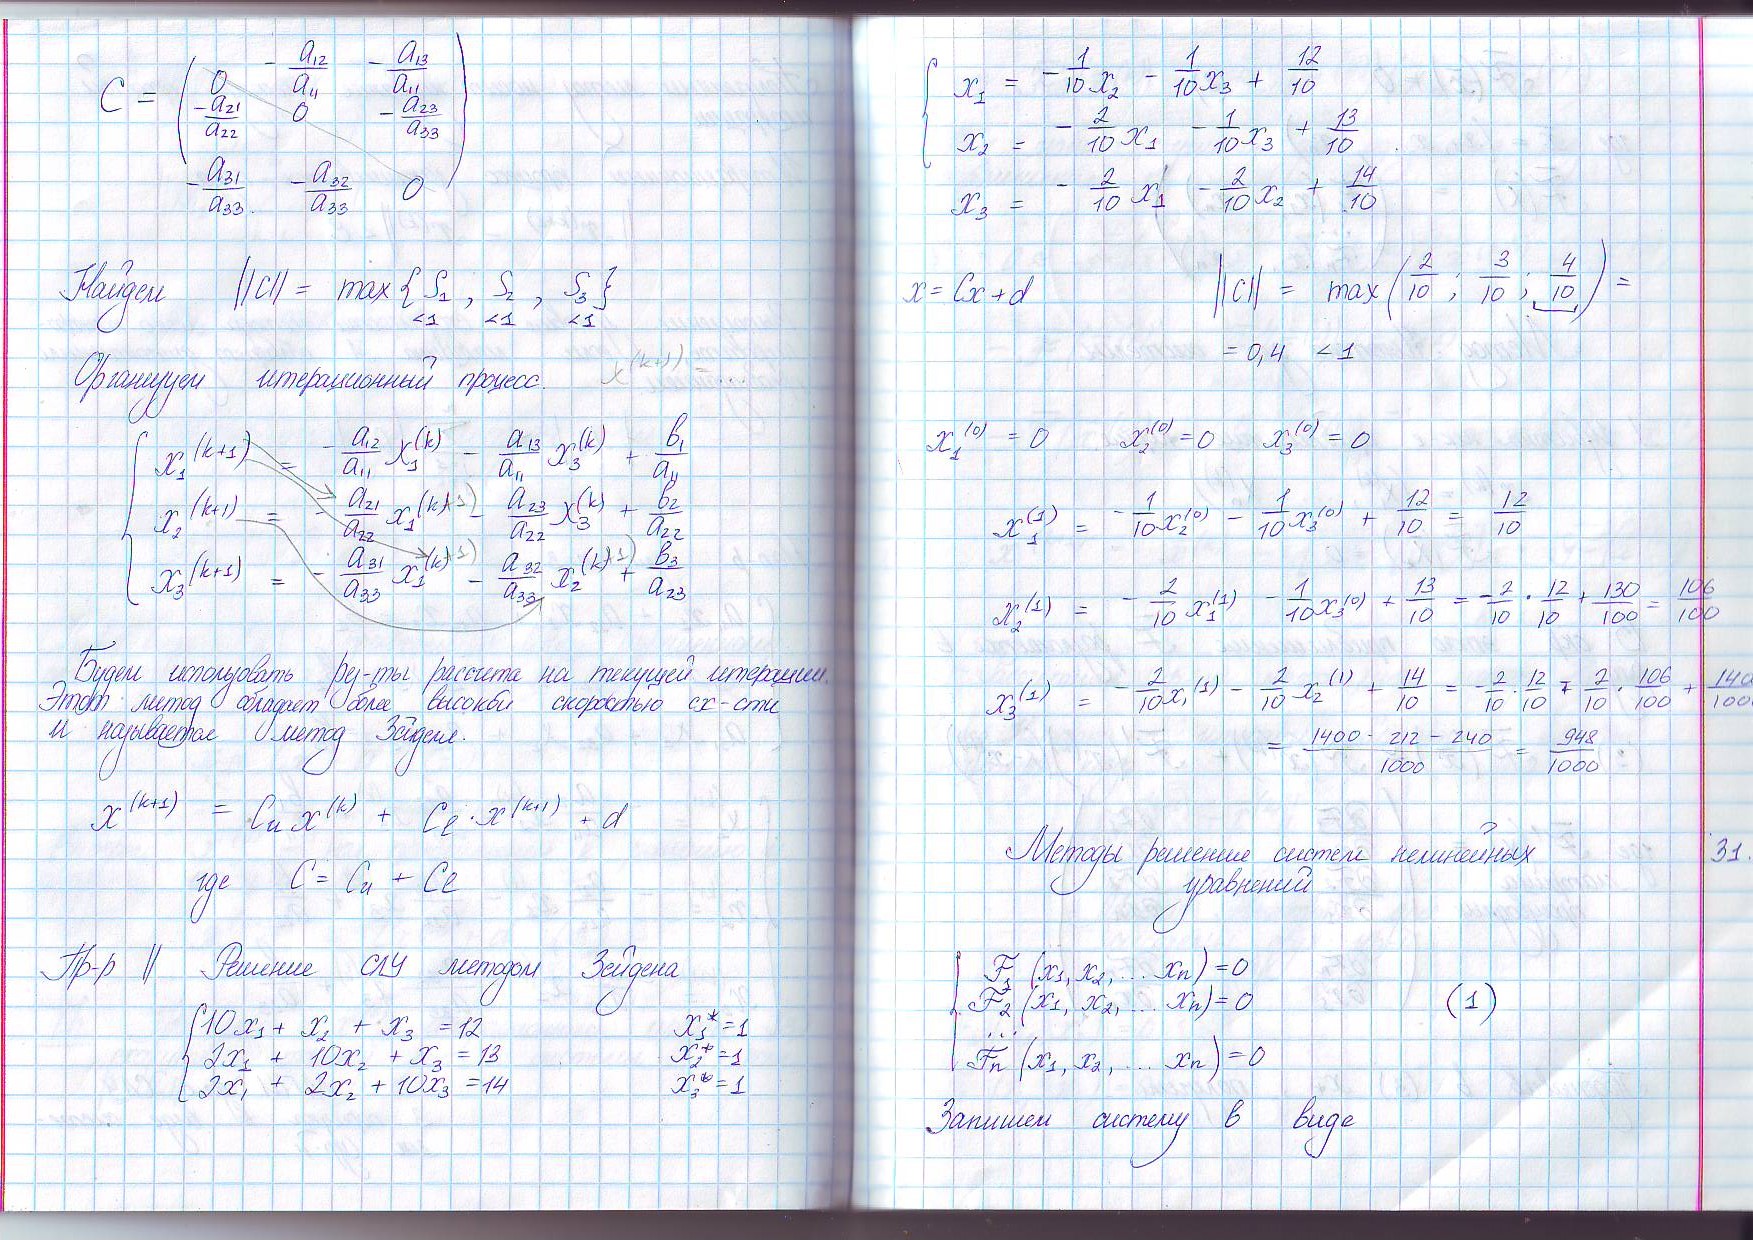 C = ( 0  -a₁₂/a₁₁  -a₁₃/a₁₁
-a₂₁/a₂₂  0  -a₂₃/a₃₃
-a₃₁/a₃₃  -a₃₂/a₃₃  0 )
Найдем ||C|| = max{S₁, S₂, S₃}
<1 <1 <1
Организуем итерационный процесс. x^(k+1) = ...
{ x₁^(k+1) = -a₁₂/a₁₁ x₁^(k) - a₁₃/a₁₁ x₃^(k) + b₁/a₁₁
x₂^(k+1) = -a₂₁/a₂₂ x₁^(k+1) - a₂₃/a₂₂ x₃^(k) + b₂/a₂₂
x₃^(k+1) = -a₃₁/a₃₃ x₁^(k+1) - a₃₂/a₃₃ x₂^(k+1) + b₃/a₂₃
Будем использовать ре-ты рассчета на текущей итерации.
Этот метод обладает более высокой скоростью сх-сти
и называется метод Зейделя.
x^(k+1) = Cᵤ x^(k) + C_l · x^(k+1) + d
где C = Cᵤ + C_l
Пр-р || Решение СЛУ методом Зейдена
{ 10x₁ + x₂ + x₃ = 12  x₁* = 1
2x₁ + 10x₂ + x₃ = 13  x₂* = 1
2x₁ + 2x₂ + 10x₃ = 14  x₃* = 1
{ x₁ = -1/10 x₂ - 1/10 x₃ + 12/10
x₂ = -2/10 x₁ - 1/10 x₃ + 13/10
x₃ = -2/10 x₁ - 2/10 x₂ + 14/10
x = Cx + d  ||C|| = max(2/10; 3/10; 4/10) =
= 0,4 < 1
x₁^(0) = 0  x₂^(0) = 0  x₃^(0) = 0
x₁^(1) = -1/10 x₂^(0) - 1/10 x₃^(0) + 12/10 = 12/10
x₂^(1) = -2/10 x₁^(1) - 1/10 x₃^(0) + 13/10 = -2/10 · 12/10 + 130/100 = 106/100
x₃^(1) = -2/10 x₁^(1) - 2/10 x₂^(1) + 14/10 = -2/10 · 12/10 + 2/10 · 106/100 + 1400/1000
= (1400 - 212 - 240)/1000 = 948/1000
Методы решение систем нелинейных 31.
уравнений
{ F₁ (x₁, x₂, ... xn) = 0
F₂ (x₁, x₂, ... xn) = 0 (1)
...
Fn (x₁, x₂, ... xn) = 0
Запишем систему в виде